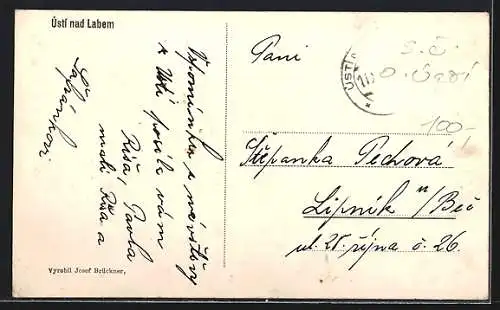 Ústí nad Labem
Vzpomínka s návštěvy
z Ústí posílá vám
Růža, Pavla
malá Růža a
Šafránkovi
Vyrobil Josef Brückner,
Paní
ÚSTÍ
S.Č.
O. Ústí
100-,
Štěpanka Pechová
Lipník n/Beč
ul. 28. října č. 26.